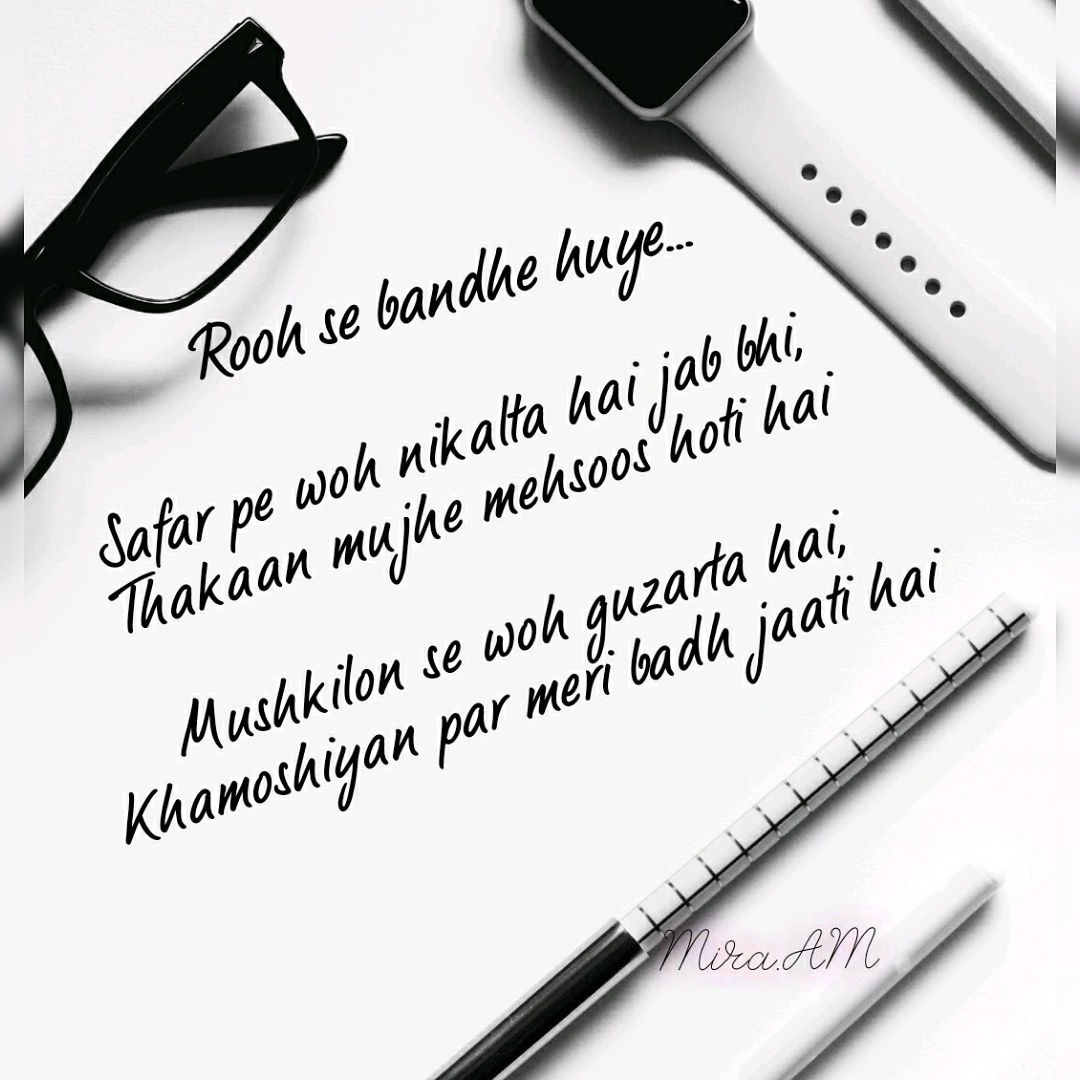 Rooh se bandhe huye...
Safar pe woh nikalta hai jab bhi,
Thakaan mujhe mehsoos hoti hai
Mushkilon se woh guzarta hai,
Khamoshiyan par meri badh jaati hai
Mira.AM